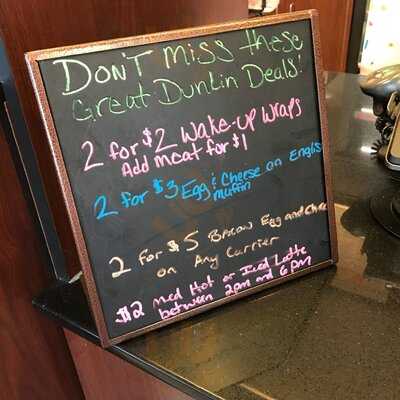 Don't Miss these
Great Dunkin Deals!
2 for $2 Wake-up Wraps
Add meat for $1
2 for $3 Egg & Cheese on Englis
Muffin
2 for $5 Bacon Egg and Chee
on Any Carrier
$2 med Hot or Iced Latte
between 2pm and 6pm